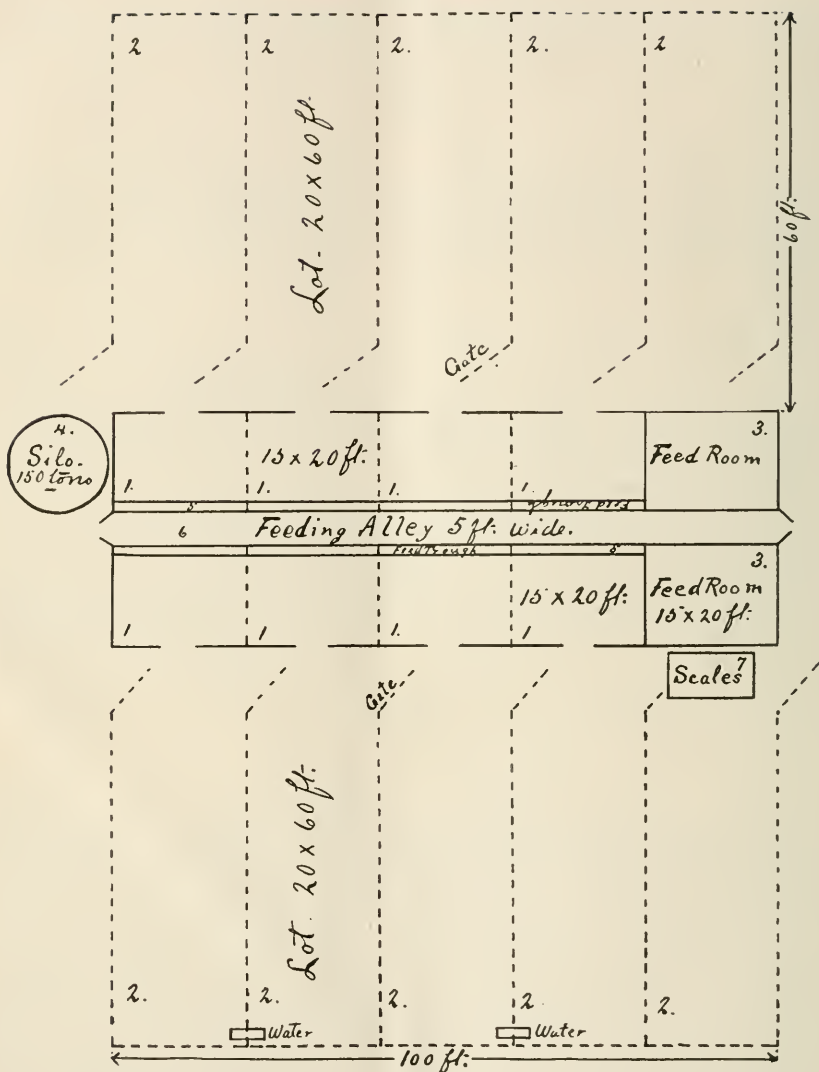 2 2 2. 2. 2
Lot. 20 x 60 ft.
60 ft.
Gate
4.
Silo.
150 tons
15 x 20 ft.
3.
Feed Room
1. 1. 1. 1.
5 Feed Trough
6 Feeding Alley 5 ft. wide.
Feed Trough 5
3.
Feed Room
15 x 20 ft.
15 x 20 ft.
1 1 1. 1
Scales 7
Gate
Lot. 20 x 60 ft.
2. 2. 2. 2. 2.
Water Water
100 ft.